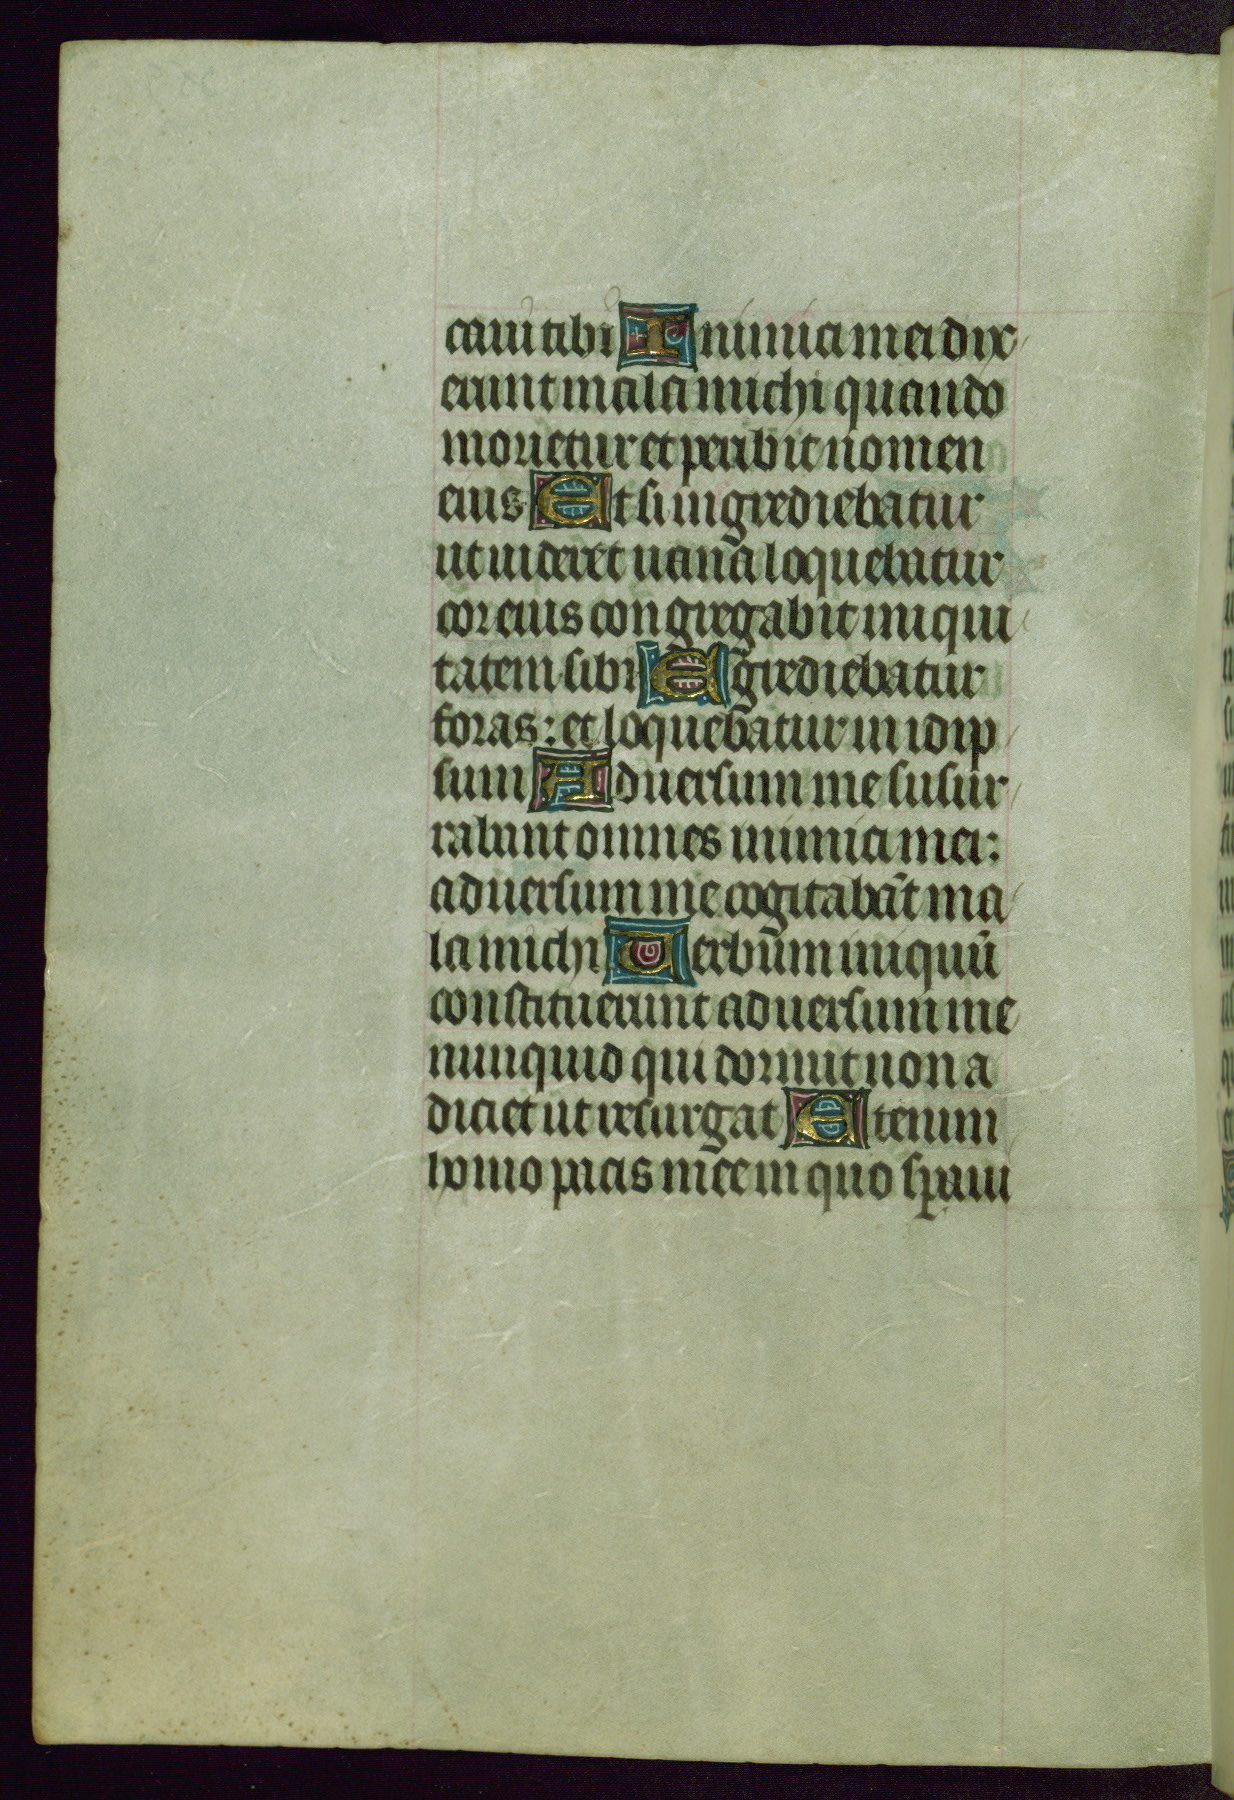 caui tibi Inimici mei dix
erunt mala michi quando
morietur et peribit nomen
eius Et si ingrediebatur
ut uideret uana loquebatur
cor eius congregabit iniqui
tatem sibi Egrediebatur
foras: et loquebatur in idip
sum Aduersum me susur
rabunt omnes inimici mei:
aduersum me cogitabāt ma
la michi Uerbum iniquū
constituerunt aduersum me
nunquid qui dormit non a
diciet ut resurgat Etenim
homo pacis mee in quo speraui